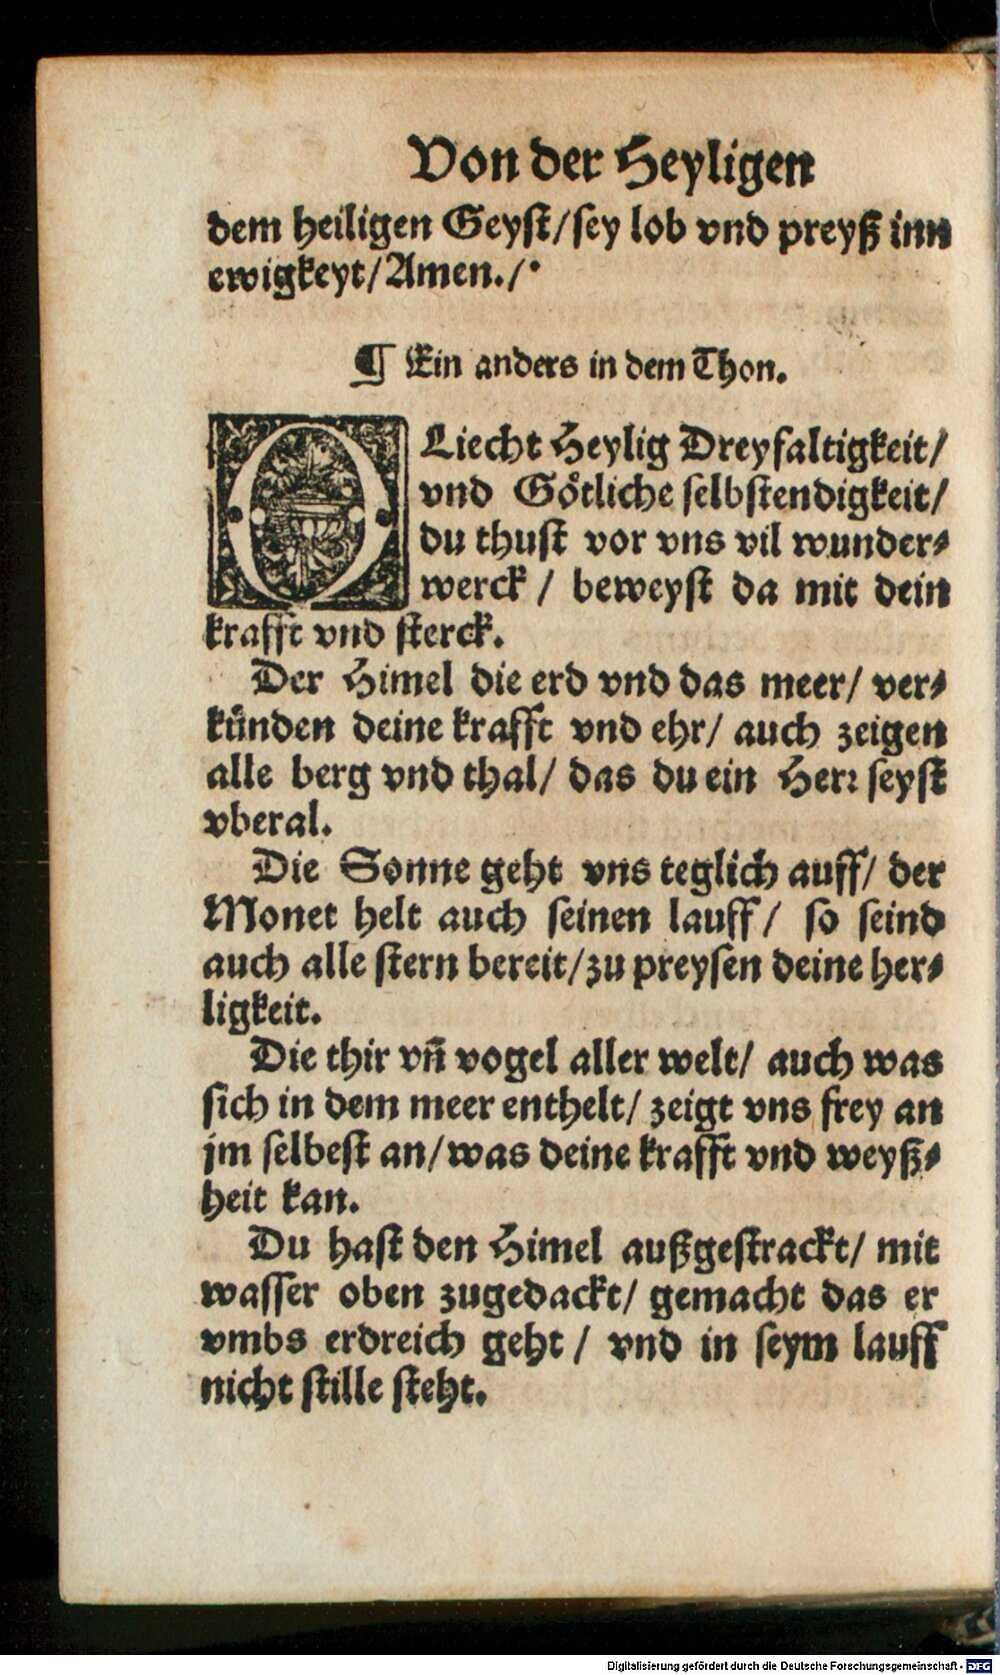 Von der Heyligen
dem heiligen Geyst/sey lob vnd preyß inn
ewigkeyt/Amen./·
¶ Ein anders in dem Thon.
O Liecht Heylig Dreyfaltigkeit/
vnd Götliche selbstendigkeit/
du thust vor vns vil wunder⸗
werck / beweyst da mit dein
krafft vnd sterck.
Der Himel die erd vnd das meer/ ver⸗
künden deine krafft vnd ehr/ auch zeigen
alle berg vnd thal/ das du ein Herr seyst
vberal.
Die Sonne geht vns teglich auff/ der
Monet helt auch seinen lauff/ so seind
auch alle stern bereit/zu preysen deine her⸗
ligkeit.
Die thir vn̄ vogel aller welt/ auch was
sich in dem meer enthelt/ zeigt vns frey an
jm selbest an/was deine krafft vnd weyß⸗
heit kan.
Du hast den Himel außgestrackt/ mit
wasser oben zugedackt/ gemacht das er
vmbs erdreich geht / vnd in seym lauff
nicht stille steht.
Digitalisierung gefördert durch die Deutsche Forschungsgemeinschaft - DFG